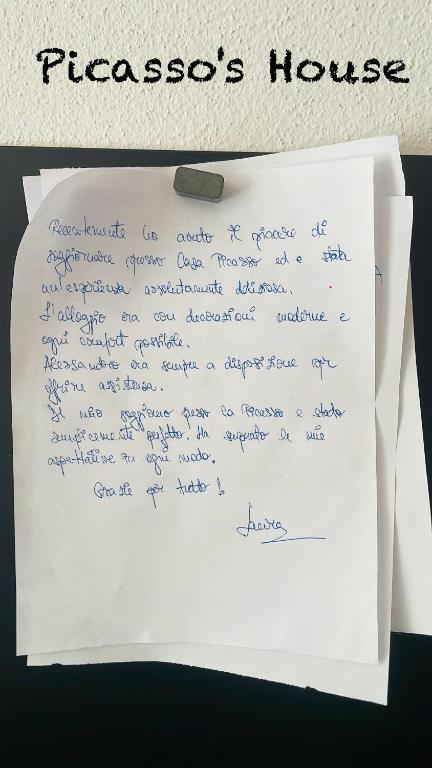 Picasso's House
Recentemente ho avuto il piacere di
soggiornare presso Casa Picasso ed e stata
un'esperienza assolutamente deliziosa.
L'alloggio era con decorazioni moderne e
ogni comfort possibile.
Alessandro era sempre a disposizione per
offrire assistenza.
Il mio soggiorno presso Ca Picasso e stato
semplicemente perfetto. Ha superato le mie
aspettative in ogni modo.
Grazie per tutto !